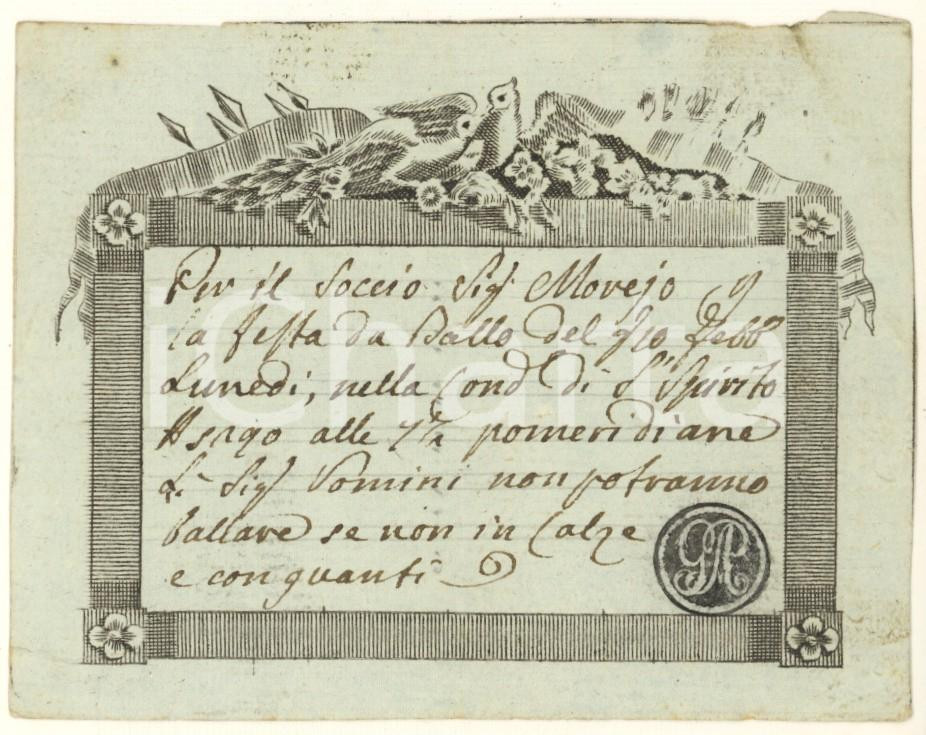 Per il Soccio Sigʳ Morejo p
la festa da Ballo del gio Febbº
Lunedì, nella Cond di S. Spirito
Asigo alle 7½ pomeridiane
Li Sigʳ Uomini non potranno
ballare se non in Calze
e con guanti